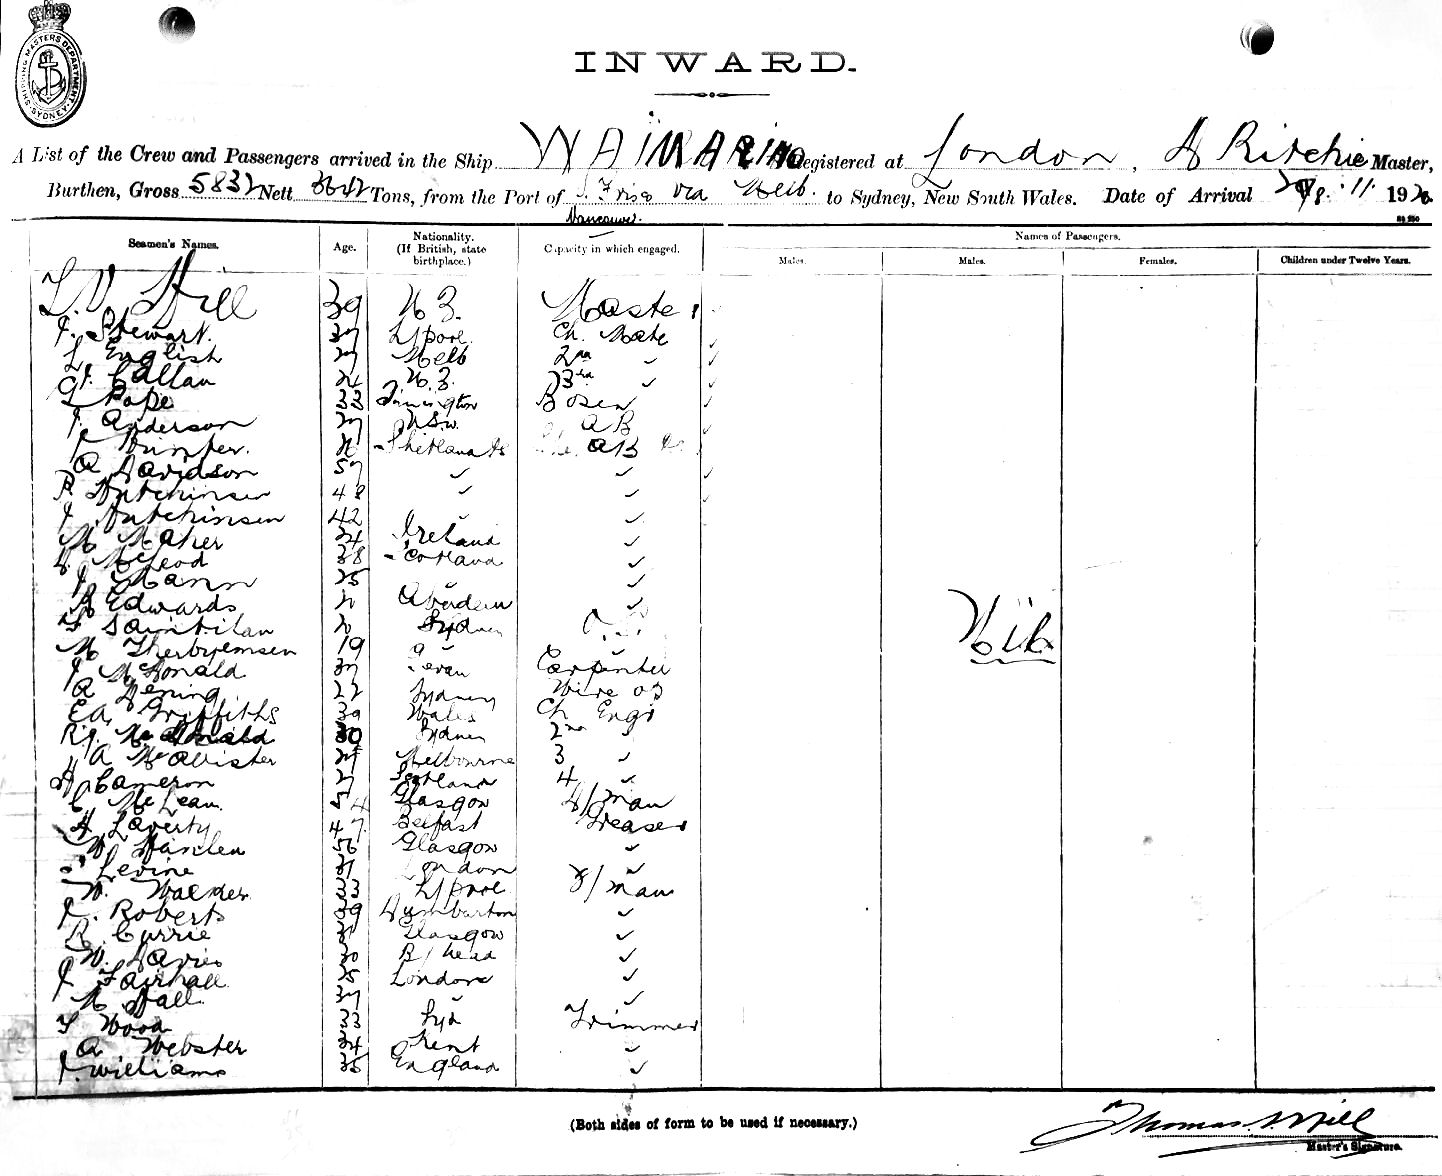 SHIPPING MASTERS DEPARTMENT SYDNEY
INWARD.
A List of the Crew and Passengers arrived in the Ship WAIMARINO Registered at London, A Ritchie Master,
Burthen, Gross 5832 Nett 3642 Tons, from the Port of S. Frisco via Melb. to Sydney, New South Wales. Date of Arrival 11 192
Vancouver.
Seamen's Names. Age. Nationality. (If British, state birthplace.) Capacity in which engaged. Names of Passengers.
Males. Males. Females. Children under Twelve Years.
T. V. Hill 39 N Z. Master
J. Stewart. L/pool Ch. Mate
L English Melb 2nd ✓
Callan 24 N. Z. 3rd ✓
G Pope 33 Bosen
J. Anderson N.S.W. AB
J Shetland Is AB
A Davidson 57 ✓ ✓
R Hutchinson 48 ✓ ✓
J Hutchinson 42 ✓ ✓
M Maher 24 Ireland ✓
D. McLeod 38 Scotland ✓
J Mann 25 ✓ ✓
R Edwards 20 Aberdeen ✓
Sydney
M 19
J McDonald Carpenter
A Hening 22 Sydney Wire op
EA. Griffiths 39 Wales Ch Engr
R.J. McDonald 30 Sydney 2nd ✓
A McAllister Melbourne 3 ✓
A Cameron Scotland 4 ✓
C McLean. 54 Glasgow D/man
H Laverty 47 Belfast Greaser
W Hanlen 56 Glasgow ✓
Levine London ✓
W. Walker 33 L/pool F/man
J. Roberts 39 Dumbarton ✓
R. Currie Glasgow ✓
W. Davies 30 B/head ✓
J Fairhall 25 London ✓
M Hall ✓ ✓
F Wood 33 Syd Trimmer
A Webster 34 Kent ✓
J. Williams 35 England ✓
Nil
(Both sides of form to be used if necessary.)
Thomas V Hill
Master's Signature.